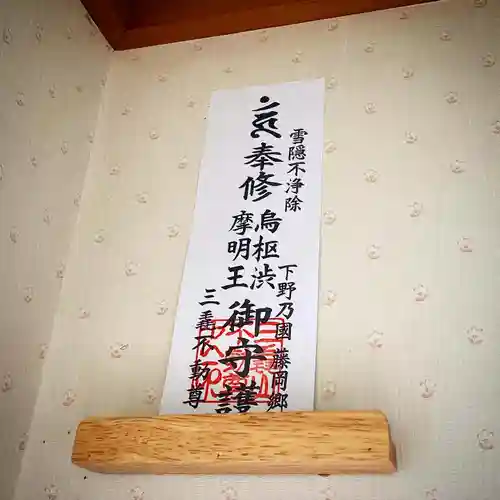 雪隠不浄除
奉修
烏枢渋
摩明王
御守護
下野乃國藤岡郷
三毳不動尊